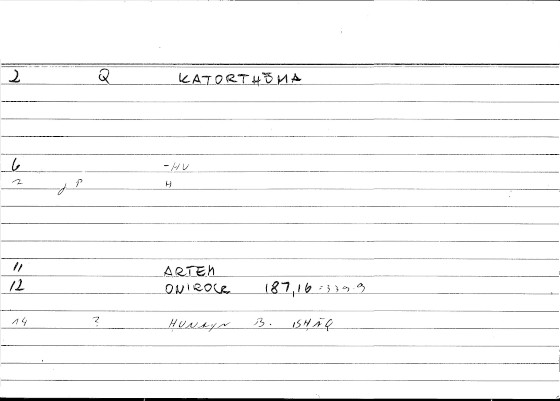 2 Q KATORTHŌMA
6 -HU
2 H
11 ARTEM
12 ONIROCR 187,16 = 339 9
14 ? HUNAYN B. ISHĀQ